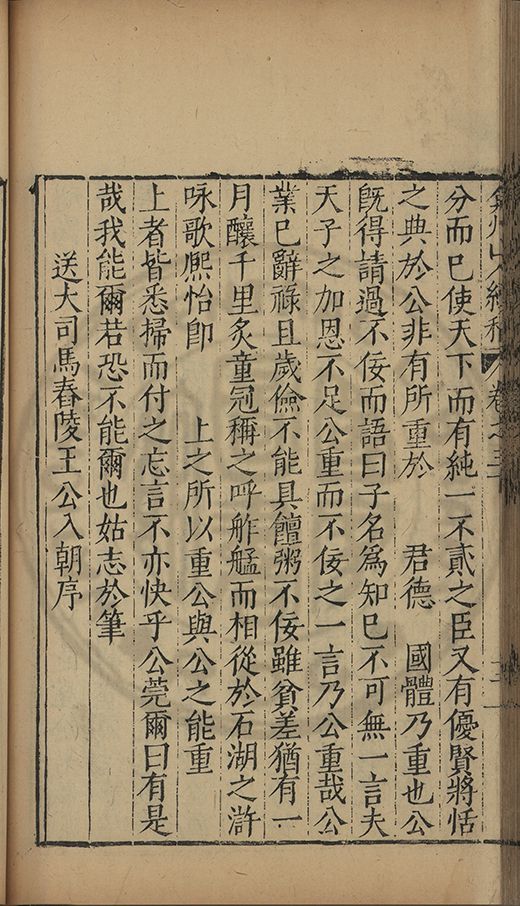 弇州山人續稿 卷之三
分而已使天下而有純一不貳之臣又有優賢將恬
之典於公非有所重於 君德 國體乃重也公
既得請過不佞而語曰子名爲知已不可無一言夫
天子之加恩不足公重而不佞之一言乃公重哉公
業已辭祿且歲儉不能具饘粥不佞雖貧差猶有一
月釀千里炙童冠稱之呼舴艋而相從於石湖之滸
咏歌熈怡卽 上之所以重公與公之能重
上者皆悉掃而付之忘言不亦快乎公莞爾曰有是
哉我能爾若恐不能爾也姑志於筆
送大司馬舂陵王公入朝序